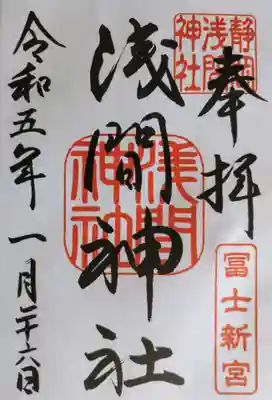 奉拝
静岡浅間神社
冨士新宮
浅間神社
淺間神社
令和五年一月二十六日